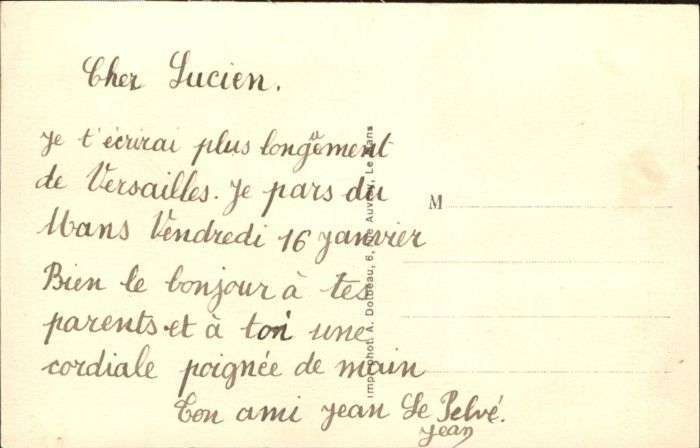 Cher Lucien.
Je t'écrirai plus longuement
de Versailles. Je pars du
Mans Vendredi 16 janvier
Bien le bonjour à tes
parents et à toi une
cordiale poignée de main
Ton ami Jean Le Pelvé.
Jean
M
Imp. phot. A. Dolbeau, 6, rue Auvray, Le Mans